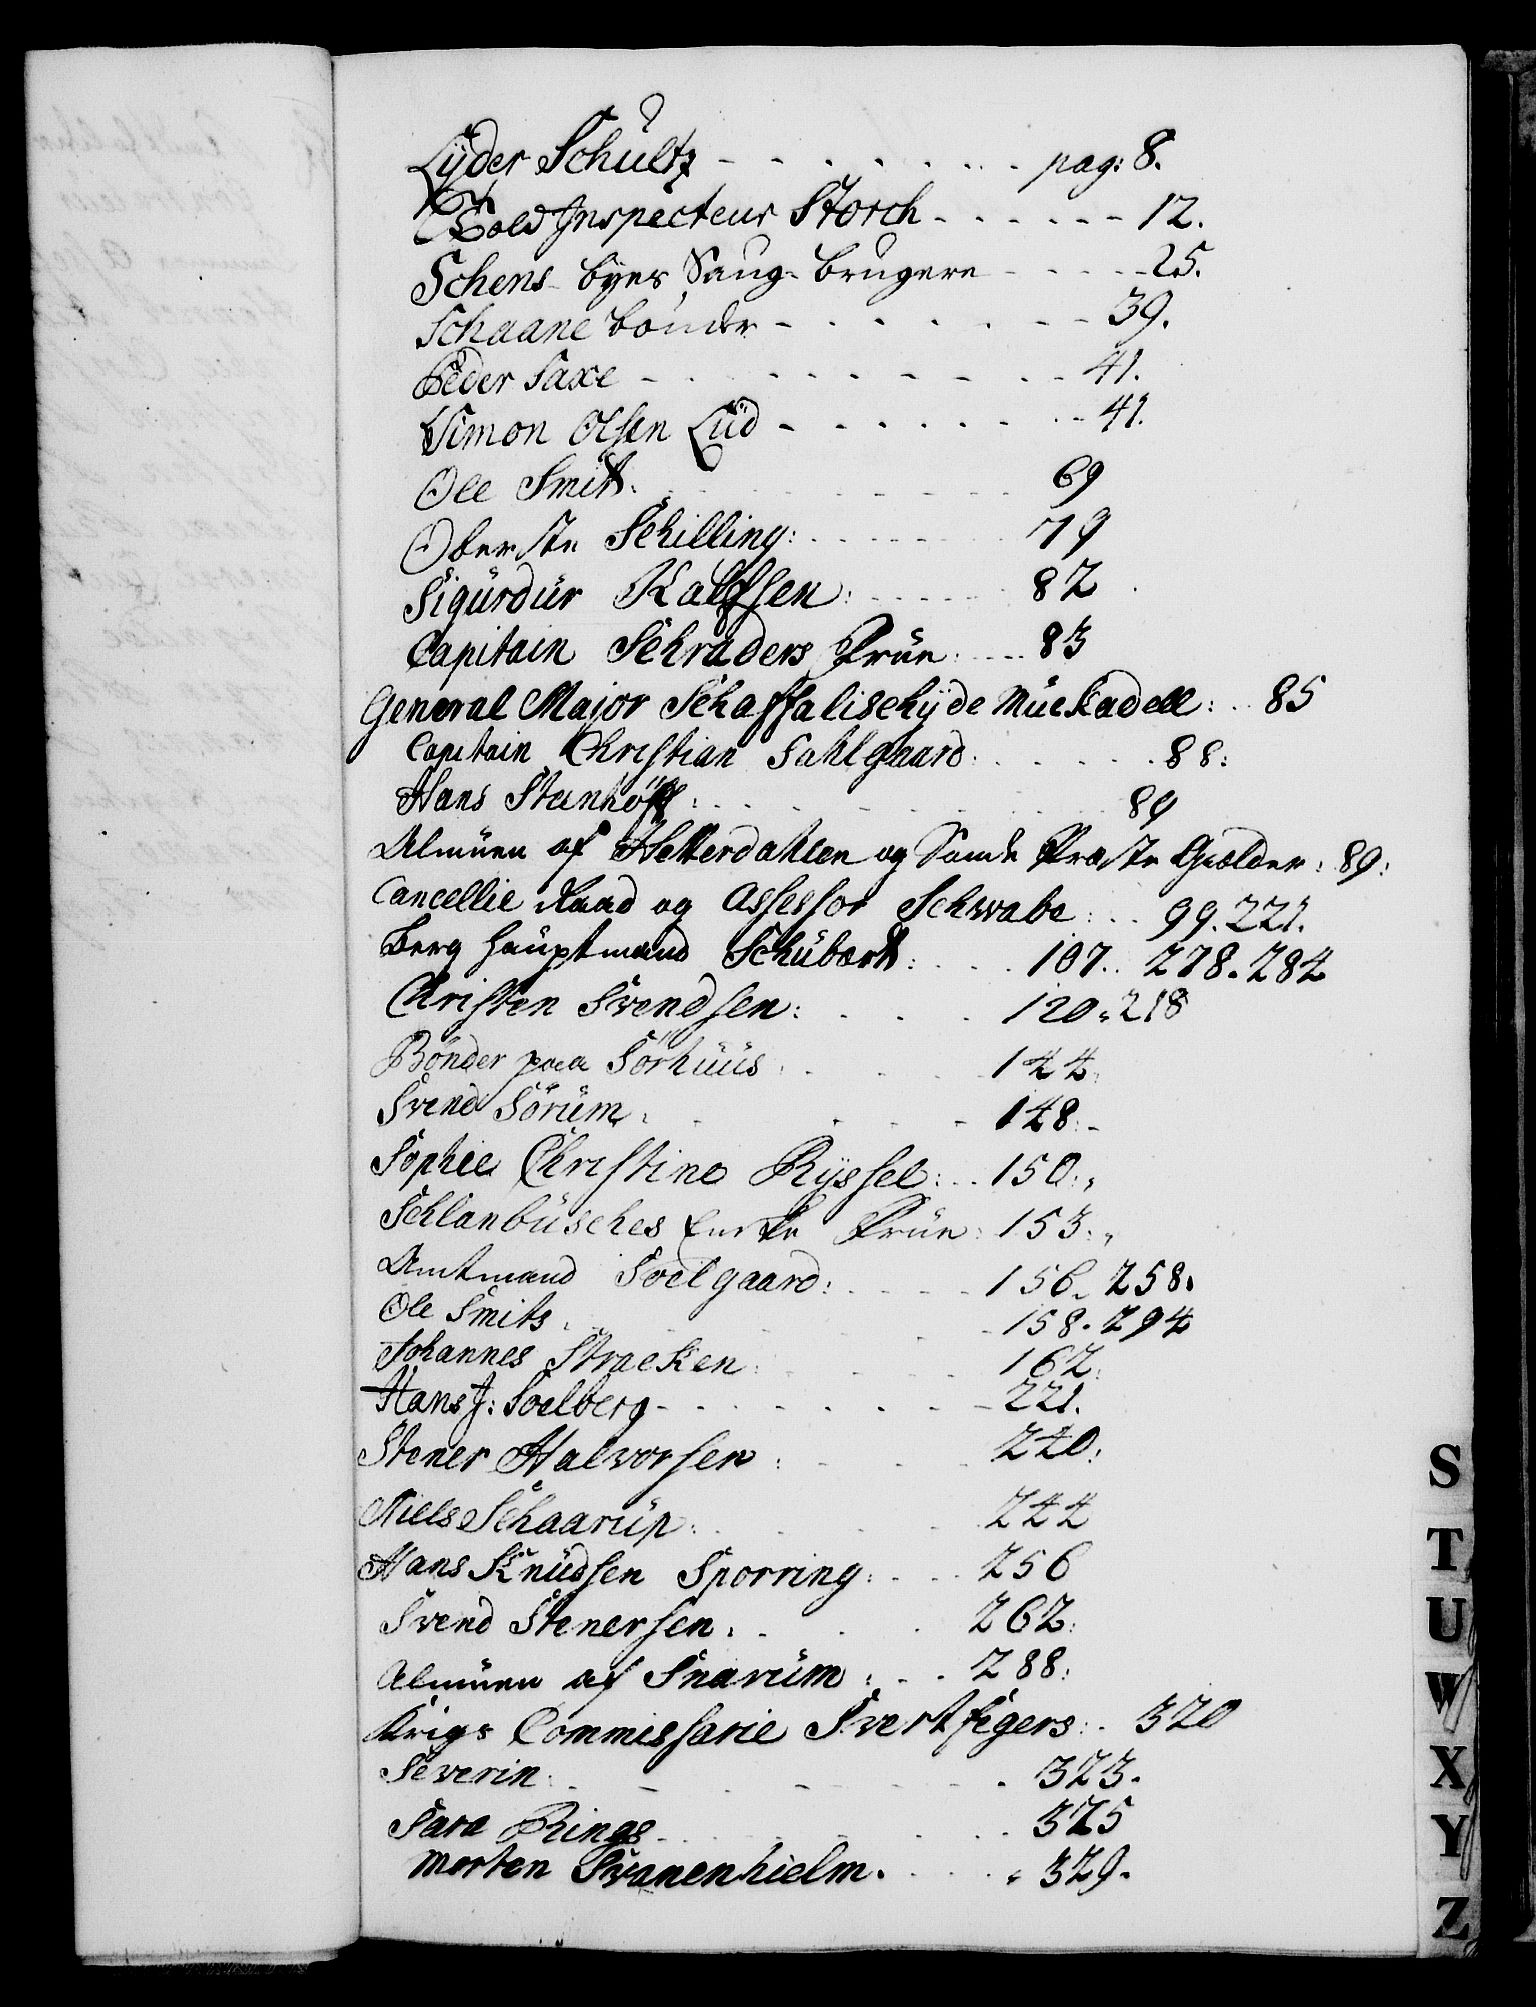 Lÿder Schultz - - - - - - - pag: 8.
Told Inspecteur Storch - - - - - - 12.
Schens byes Saug-brugere - - - - - 25.
Schaane bönder - - - - - - - 39.
Peder Saxe - - - - - - - - - 41.
Simon Olsen Lüd - - - - - - - - 41.
Ole Smit: - - - - - - - 69
Oberste Schilling: - - - - - - 79
Sigurdür Kalfsen: - - - - - - 82
Capitain Schraders Frue: - - - 83
General Major Schaffalischÿde Müekadell: - - 85
Capitain Christian Sahlgaard: - - - - - 88:
Hans Steenhöff: - - - - - - - 89
Almüen af Hetterdahlen og Samde Præste Gielder: 89:
Cancellie Raad og Assessor Schwabe: - - 99. 221.
Berg hauptmand Schübart: - - - 107. 278. 284
Christen Svendsen: - - - 120. 218
Bönder paa Sörhüüs: - - - 144.
Svend Sörüm: - - - - - 148:-
Sophie Christine Rÿssel: - - 150:,
Schlanbüsches Enke Früe: 153:,
Amtmand Soelgaard: - - - - 156. 258.
Ole Smits: - - - - - - 158. 294
Johannes Stracken: - - - - 162:
Hans J: Soelberg - - - - - - - 221.
Stener Halvorsen: - - - 240:
Niels Schaarüp: - - - 244
Hans Knüdsen Sporring: - - - 256
Svend Stenersen: - - - 262:
Almüen af Snarüm: - - - 288:
Krigs Commissarie Svertfegers: - 320
Severin: - - - - - - - 323.
Sara Rings - - - - - - - 325
Morten Svanenhielm. - - - - - 329.
S
T
U
W
X
Y
Z